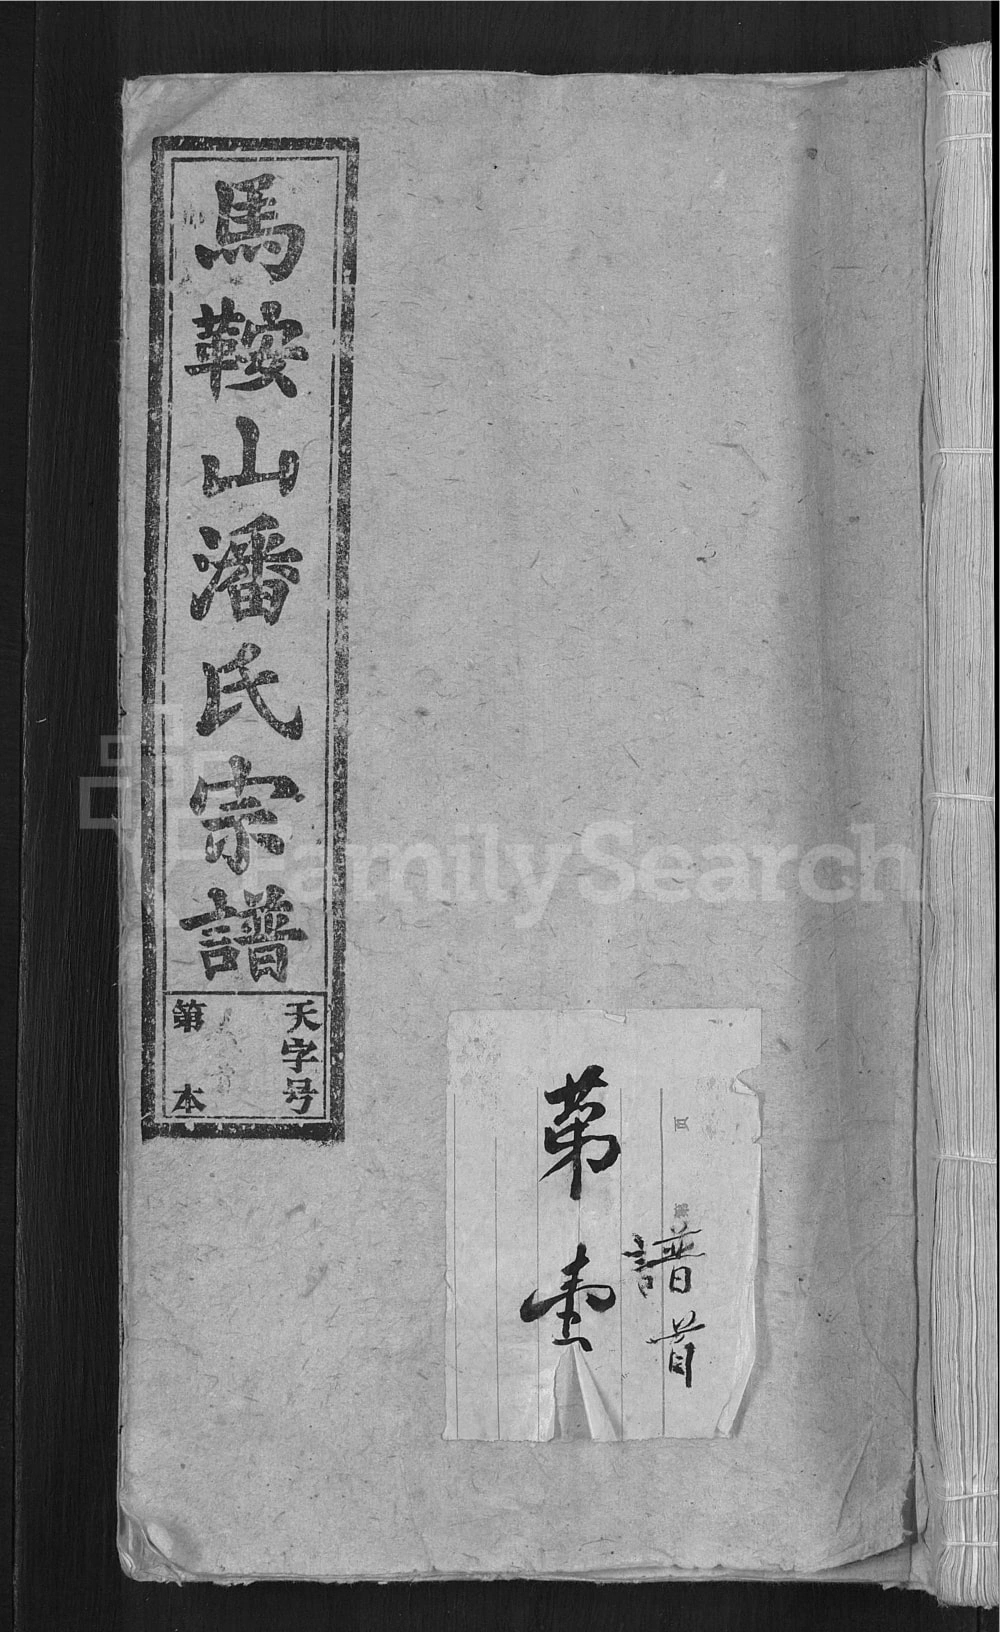 馬鞍山潘氏宗譜
天字号
第 本
譜首
第壹
頁
FamilySearch